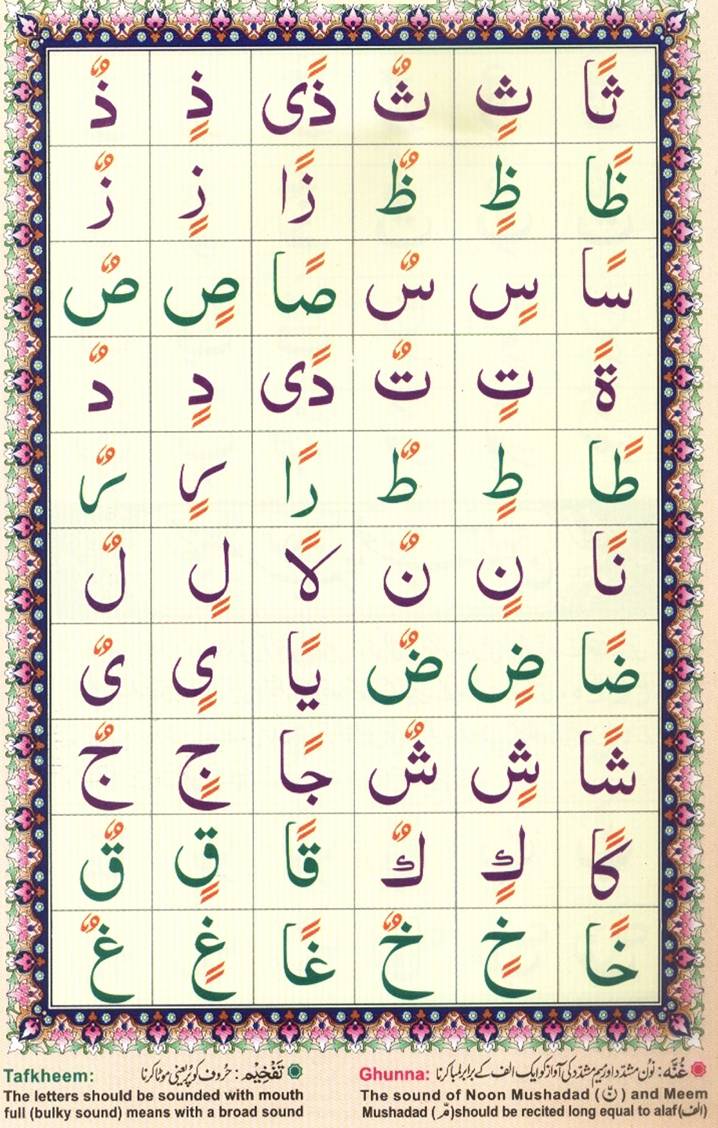 ثًا ثٍ ثٌ ذًى ذٍ ذٌ
ظًا ظٍ ظٌ زًا زٍ زٌ
سًا سٍ سٌ صًا صٍ صٌ
ةً تٍ تٌ دًى دٍ دٌ
طًا طٍ طٌ رًا رٍ رٌ
نًا نٍ نٌ لًا لٍ لٌ
ضًا ضٍ ضٌ يًا يٍ ىٌ
شًا شٍ شٌ جًا جٍ جٌ
كًا كٍ كٌ قًا قٍ قٌ
خًا خٍ خٌ غًا غٍ غٌ
غُنَّه: نون مشدد اور میم مشدد کی آواز کو ایک الف کے برابر لمبا کرنا
Ghunna:
The sound of Noon Mushadad (نّ) and Meem
Mushadad (مّ)should be recited long equal to alaf(الف)
تَفْخِيْم: حُروف کو پُر یعنی موٹا کرنا
Tafkheem:
The letters should be sounded with mouth
full (bulky sound) means with a broad sound